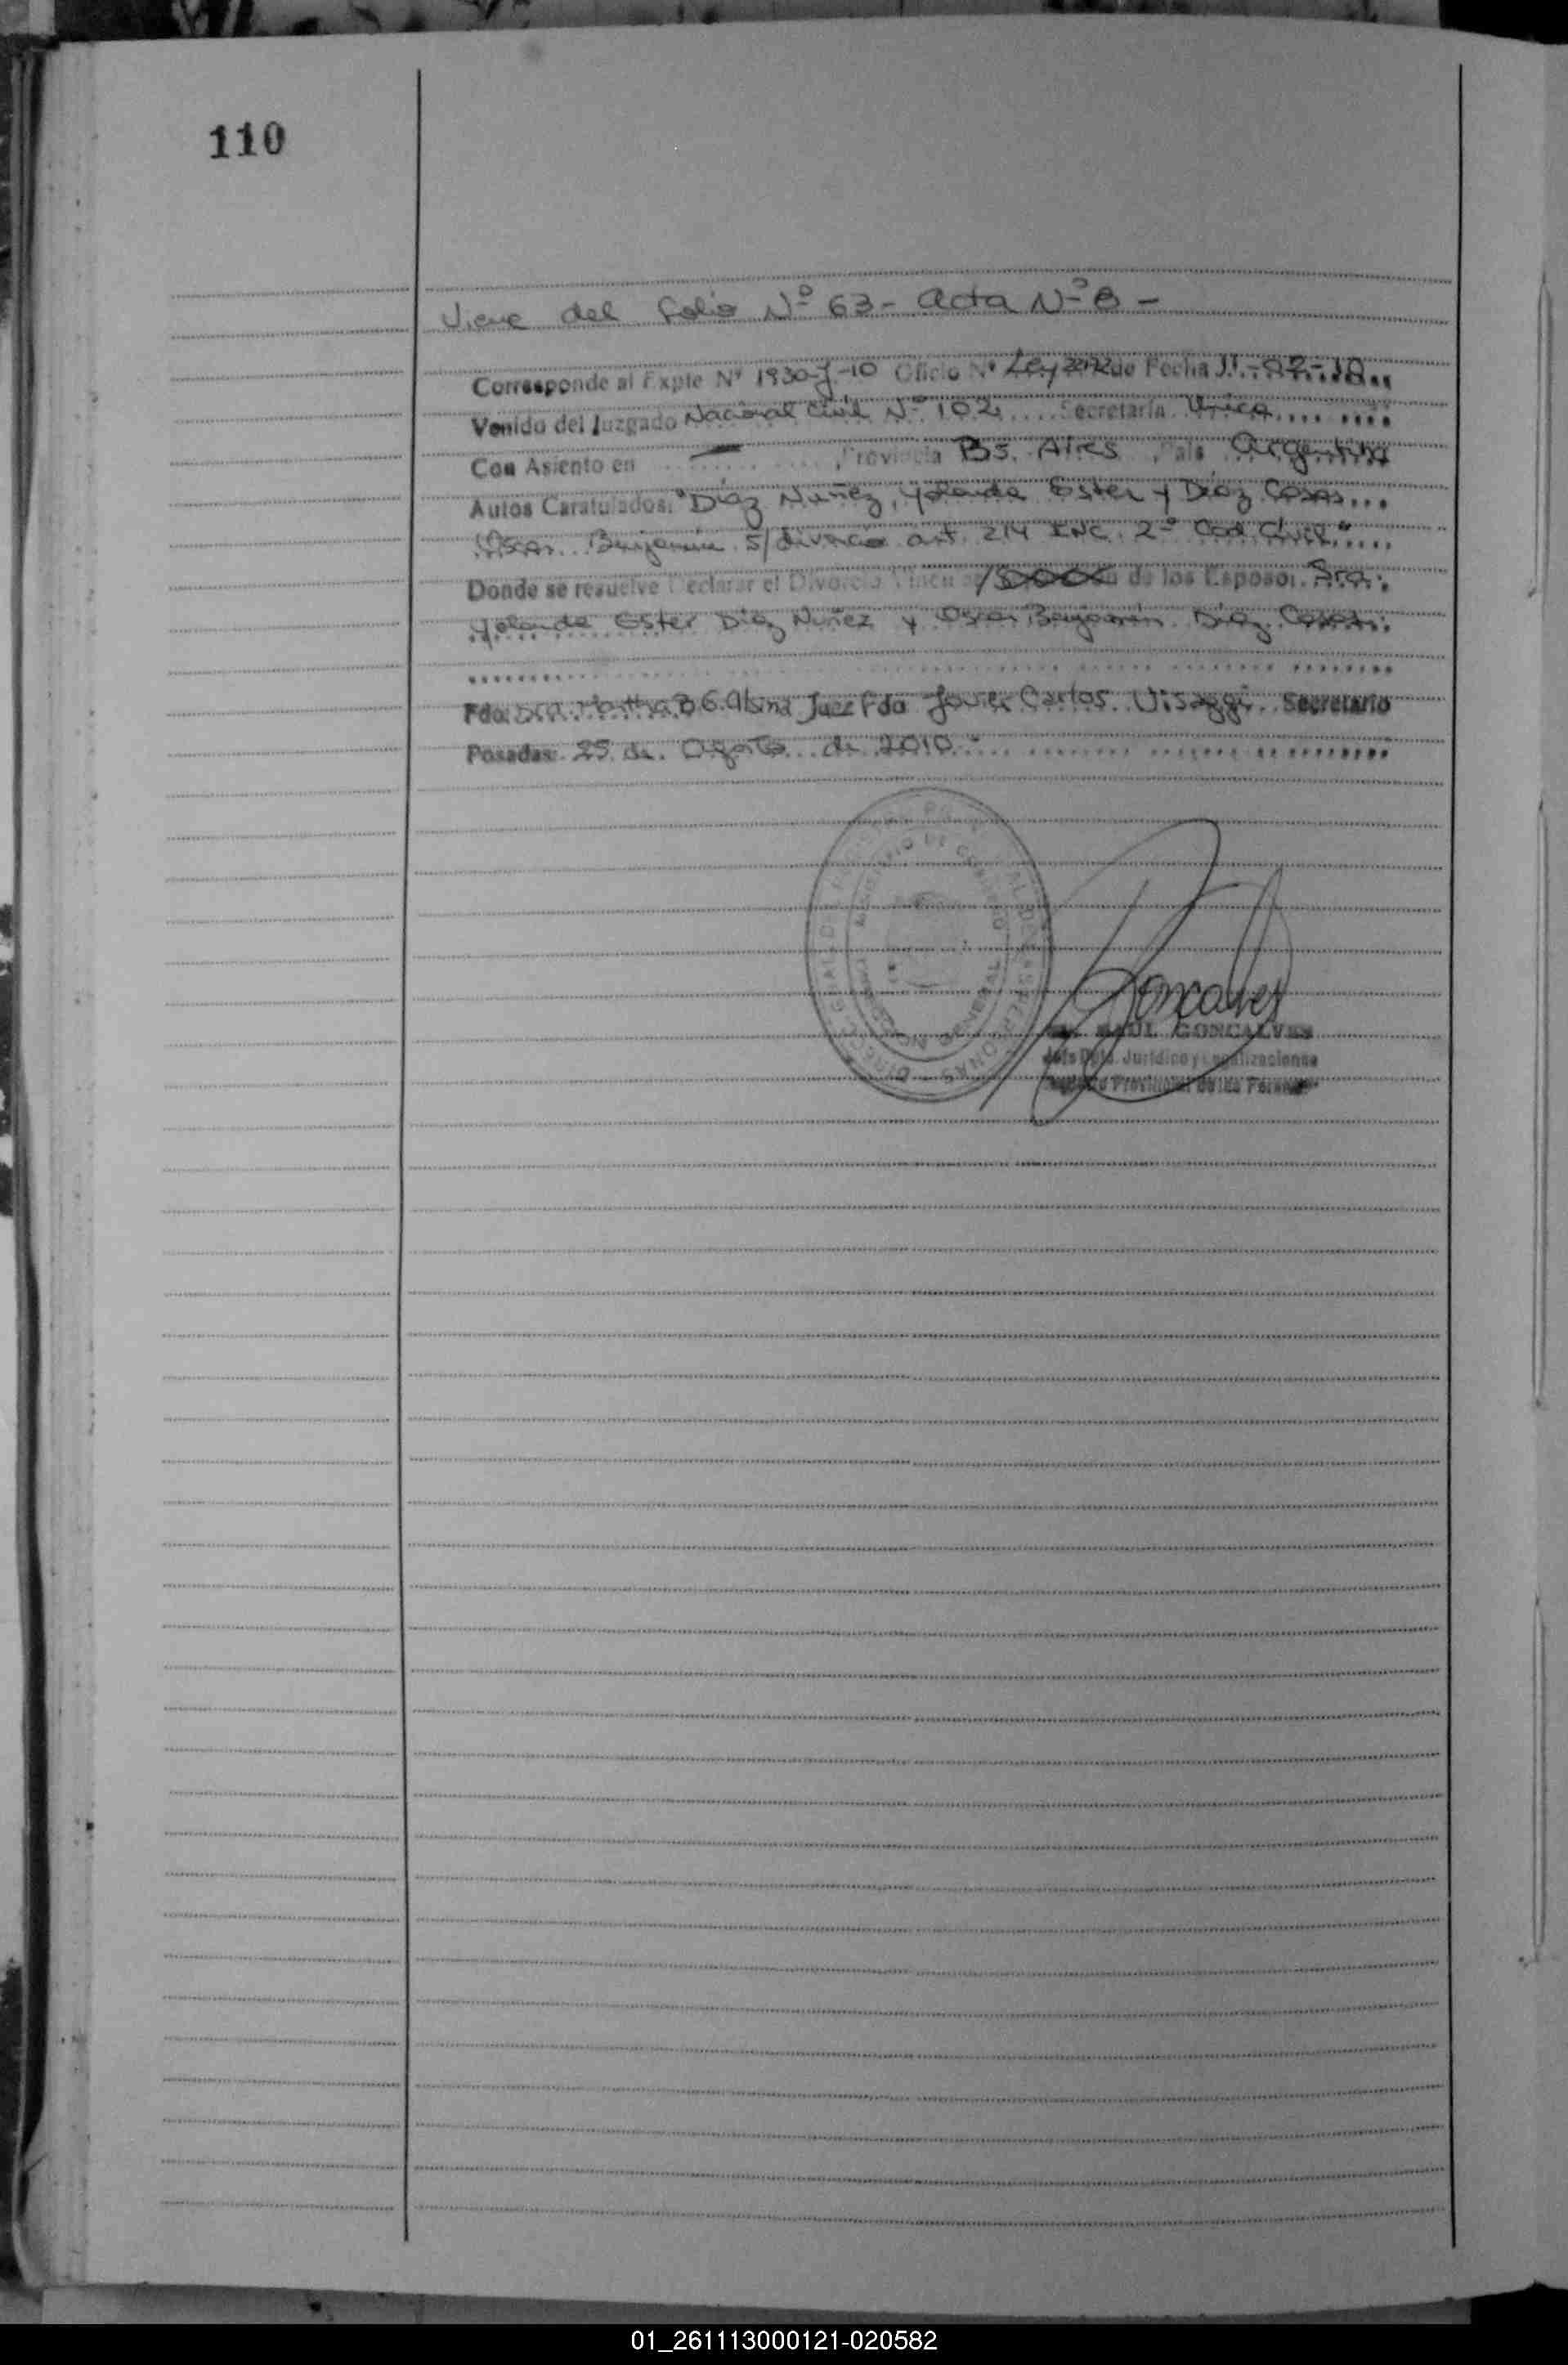 110
Viene del folio Nº 63 - Acta Nº 8 -
Corresponde al Expte Nº 1930-J-10 Oficio Nº Ley 22172 de Fecha 11-02-10
Venido del Juzgado Nacional Civil Nº 102 Secretaría Unica
Con Asiento en — , Provincia Bs. Aires , País Argentina
Autos Caratulados: "Díaz Nuñez, Yolanda Ester y Díaz Casas
Oscar Benjamín S/ divorcio art. 214 INC. 2º Cod. Civil"
Donde se resuelve Declarar el Divorcio de los Esposos: Sra.
Yolanda Ester Díaz Nuñez y Oscar Benjamín Díaz Casas
Fdo: Dra. Martha B. G. Alsina Juez Fdo Javier Carlos Visaggi Secretario
Posadas: 25 de Agosto de 2010
Goncalves
RAUL GONCALVES
Jefe Dpto. Jurídico y Legalizaciones
Registro Provincial de las Personas
01_261113000121-020582